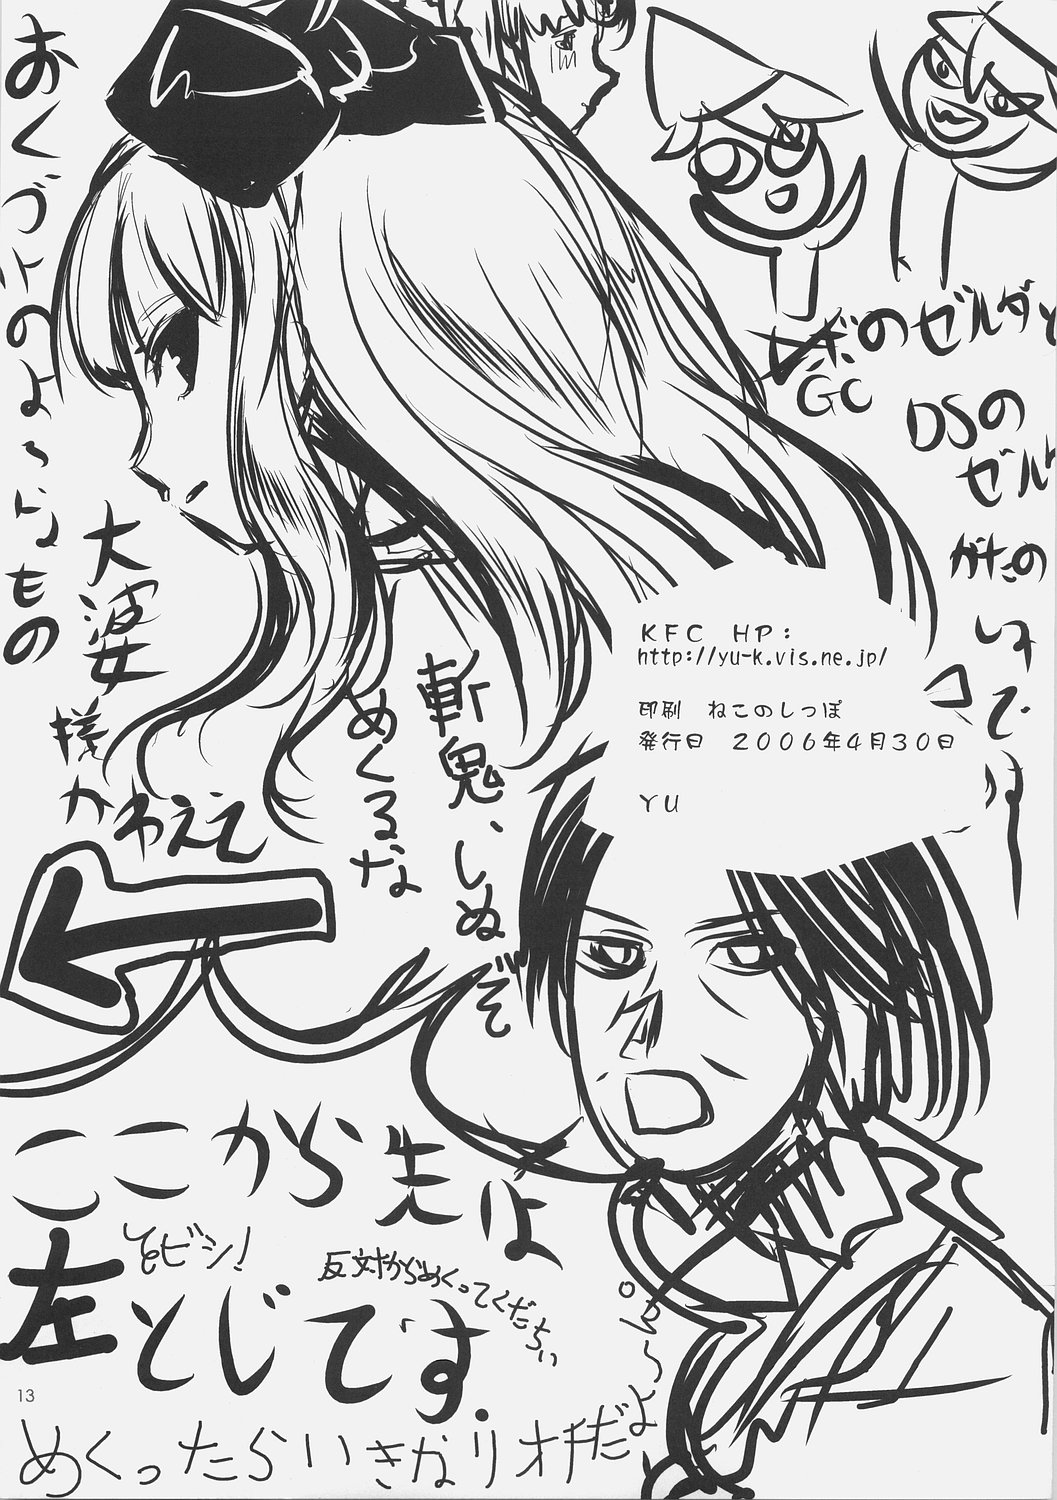 おくづけのよーなもの
大婆
様
かわええ
斬鬼、しぬぞ
めくるな
GC
のゼルダと
DSの
ゼル
がたの
です
KFC HP:
http://yu-k.vis.ne.jp/
印刷 ねこのしっぽ
発行日 2006年4月30日
YU
ここから先は
左とじです.
ビシ!
反対からめくってくだちい
めくったらいきなりオチだよ
13